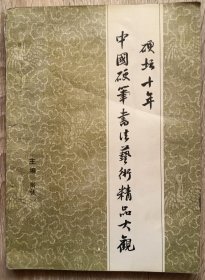 硬坛十年
中國硬筆書法藝術精品大觀
主编